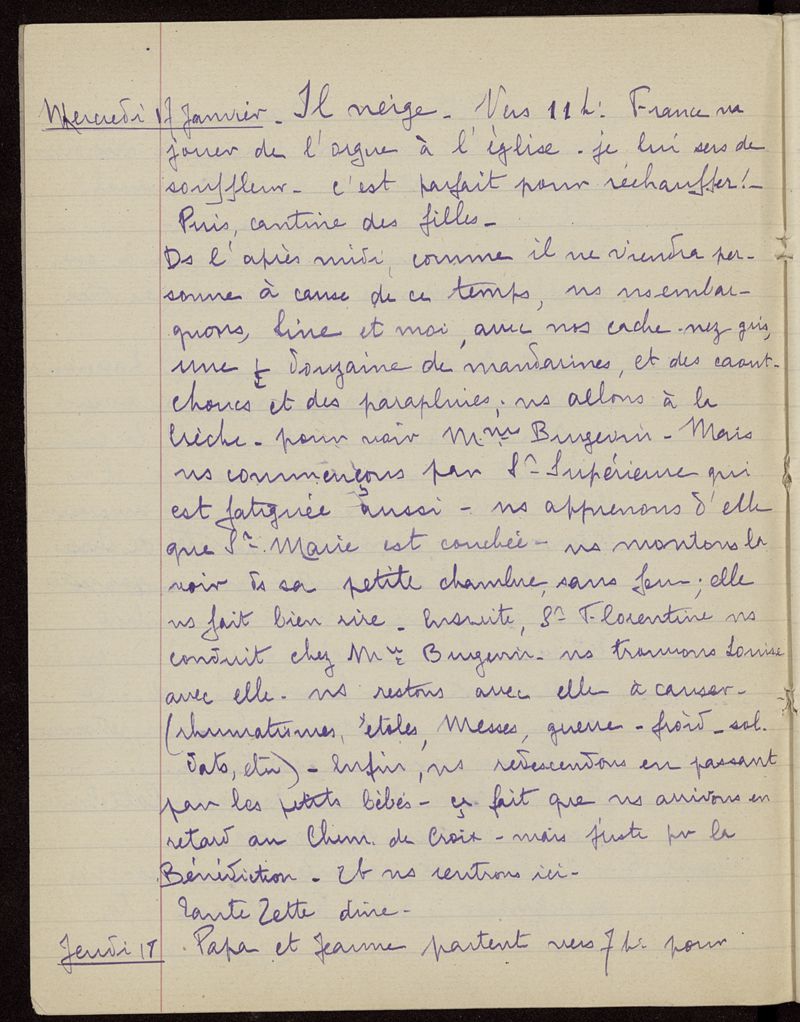 Mercredi 17 Janvier - Il neige - Vers 11 h: France va
jouer de l'orgue à l'église - je lui sers de
souffleur - c'est parfait pour réchauffer! -
Puis, cantine des filles -
Ds l'après midi, comme il ne viendra per-
sonne à cause de ce temps, ns ns embar-
quons, Line et moi, avec nos cache-nez gris,
une ½ douzaine de mandarines, et des caout-
choucs et des parapluies; ns allons à la
Crèche - pour voir Mme Bugevin - Mais
ns commençons par Sr Supérieure qui
est fatiguée aussi - ns apprenons d'elle
que Sr Marie est couchée - ns montons la
voir ds sa petite chambre, sans feu; elle
ns fait bien rire - Ensuite, Sr Florentine ns
conduit chez Bugevin - ns trouvons Louise
avec elle - ns restons avec elle à causer -
(rhumatismes, étoles, Messes, guerre - froid - sol-
dats, etc) - Enfin, ns redescendons en passant
par les petits bébés - ça fait que ns arrivons en
retard au Chem. de Croix - mais juste pr la
Bénédiction - Et ns rentrons ici -
Tante Zette dine -
Jeudi 18 Papa et Jeanne partent vers 7 h: pour